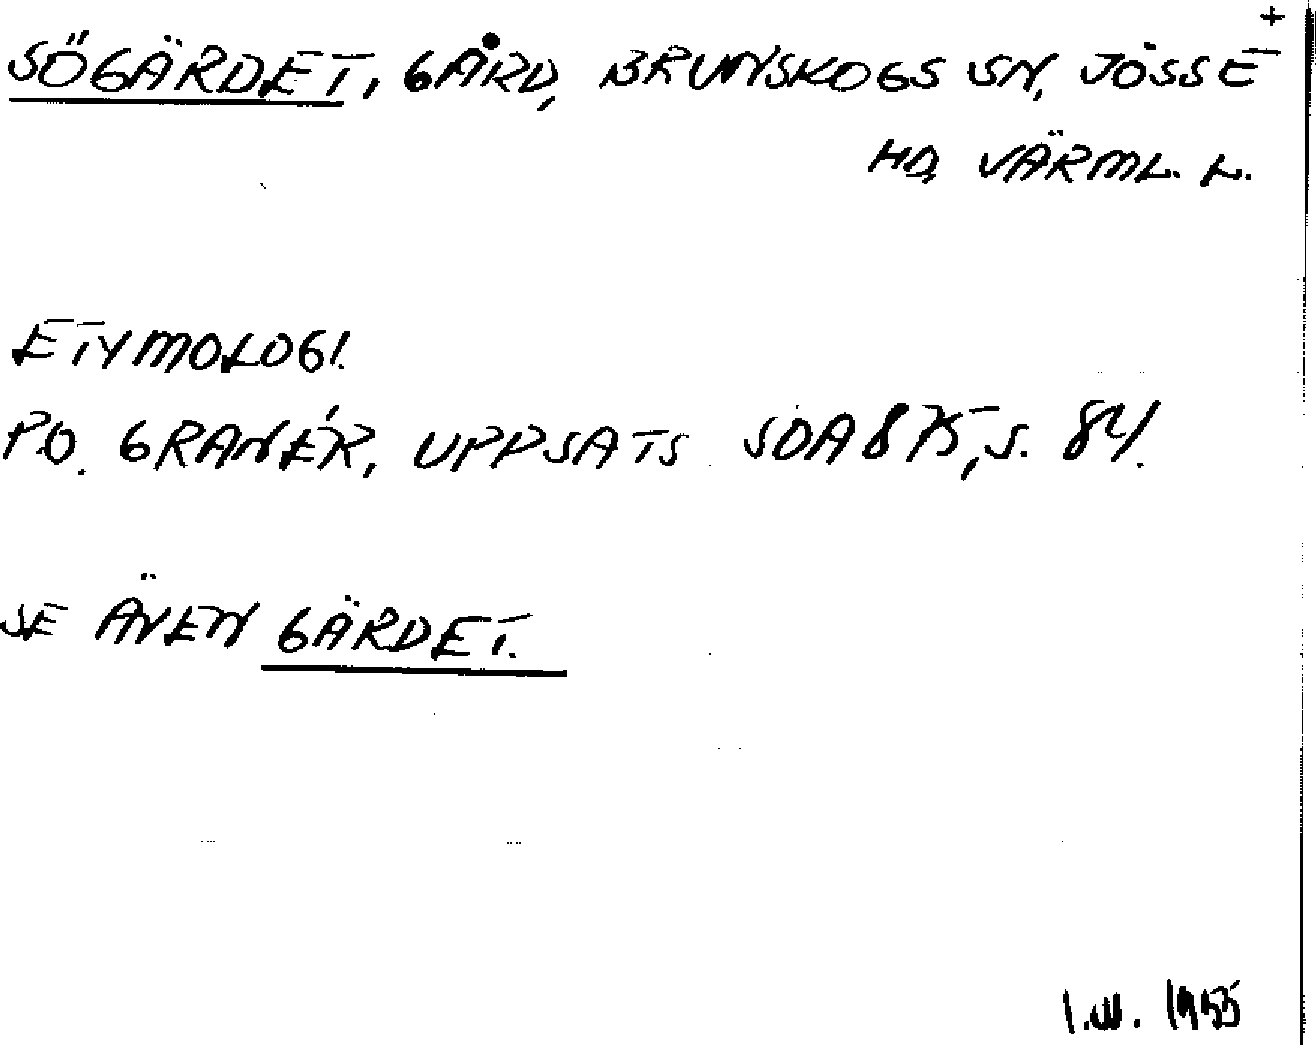 +
SÖGÄRDET, GÅRD, BRUNSKOGS SN, JÖSSE
HD, VÄRML. L.
ETYMOLOGI.
PO. GRANÉR, UPPSATS SOA 875, S. 84.
SE ÄVEN GÄRDET.
I.W. 1955